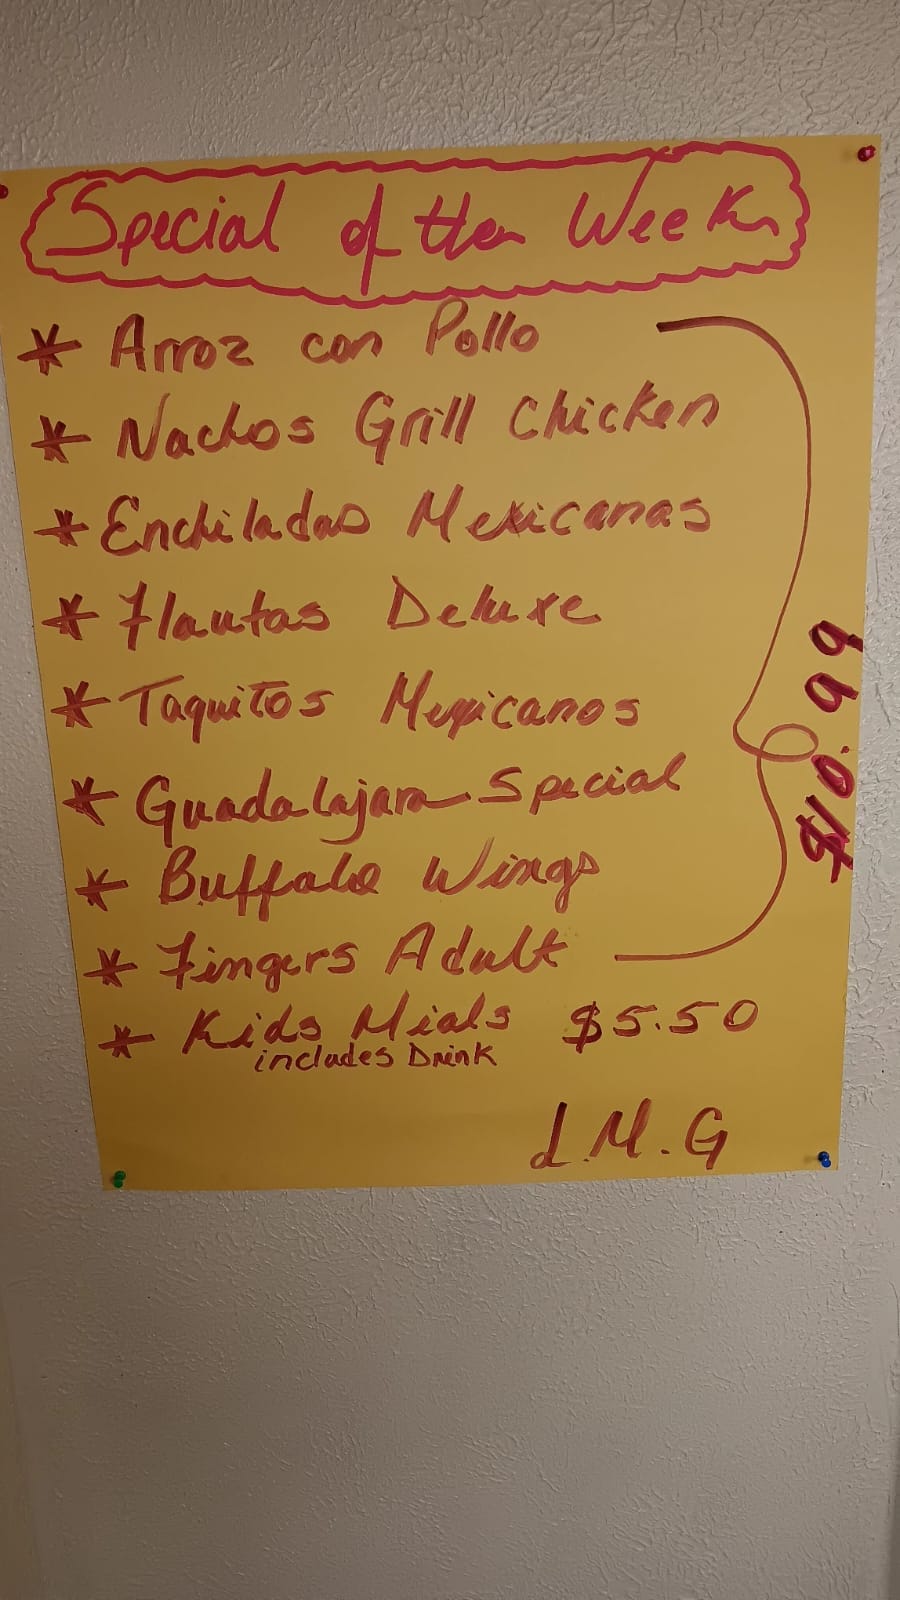 Special of the Week
* Arroz con Pollo
* Nachos Grill Chicken
* Enchiladas Mexicanas
* Flautas Deluxe
* Taquitos Mexicanos
* Guadalajara Special
* Buffalo Wings
* Fingers Adult
$10.99
* Kids Mials $5.50
includes Drink
L.M.G